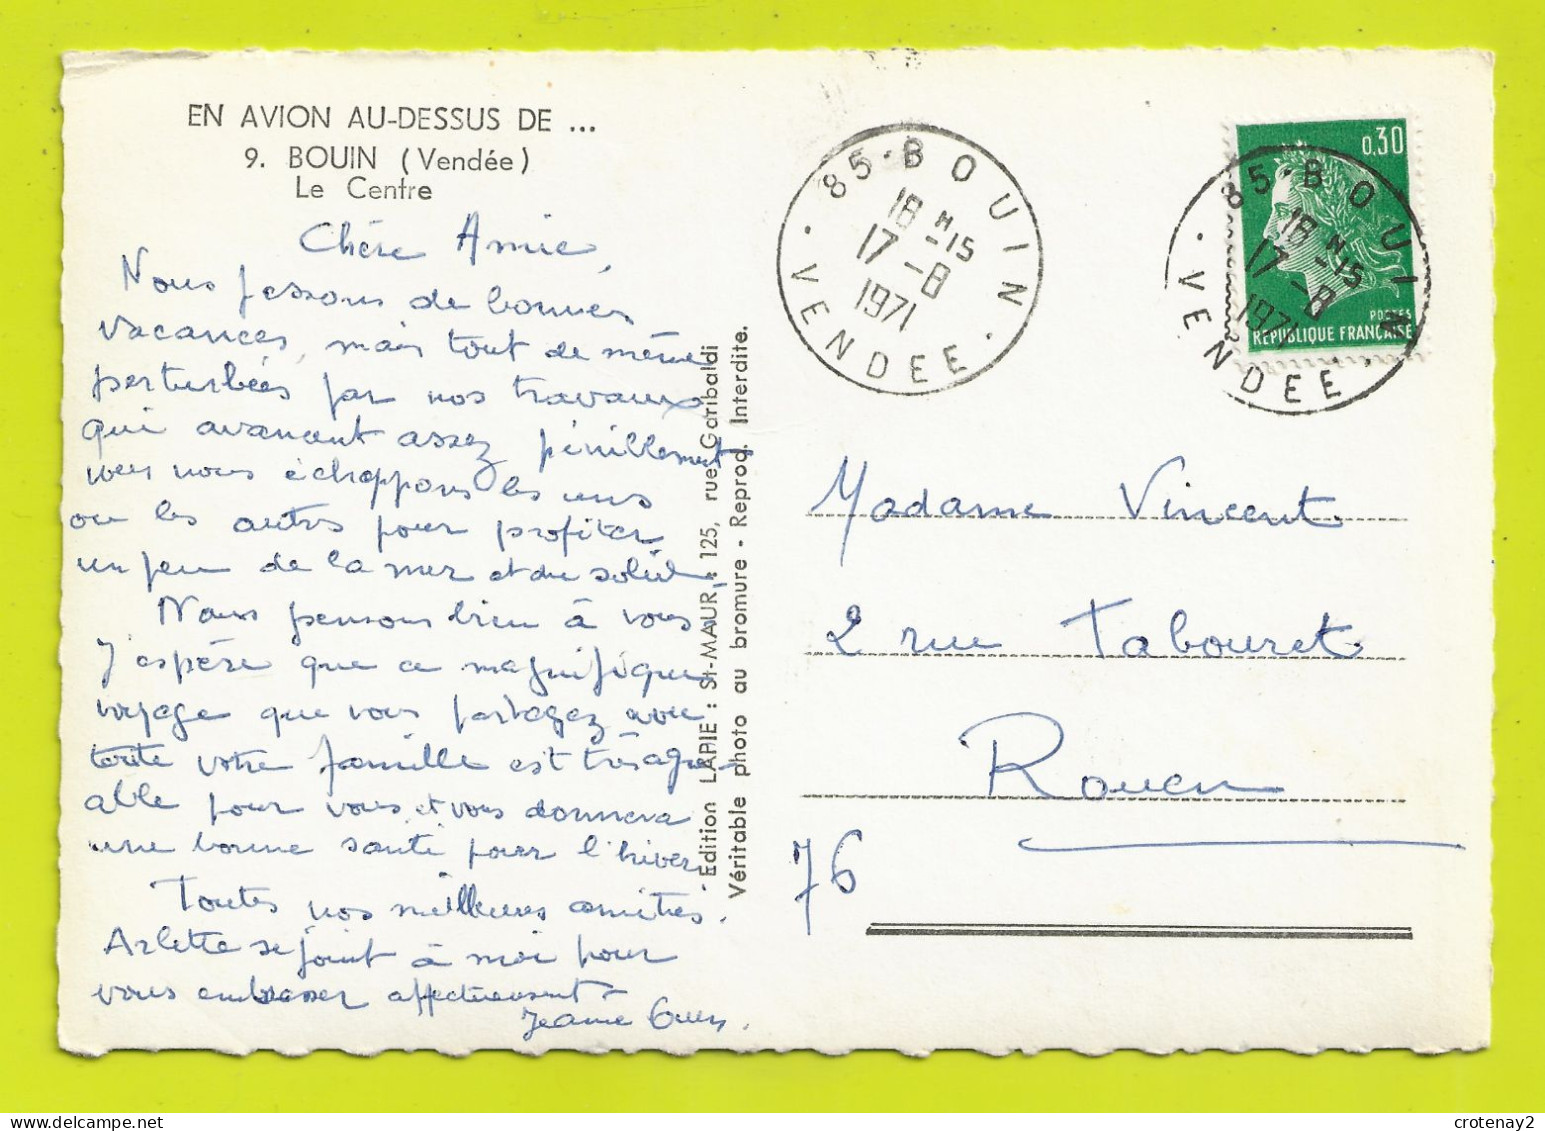 EN AVION AU-DESSUS DE ...
9. BOUIN (Vendée)
Le Centre
Chère Amie,
Nous passons de bonnes
vacances, mais tout de même
perturbées par nos travaux
qui avancent assez péniblement
nous échappons les uns
ou les autres pour profiter
un peu de la mer et du soleil
Nous pensons bien à vous
J'espère que ce magnifique
voyage que vous partagez avec
toute votre famille est très agré-
able pour vous et vous donnera
une bonne santé pour l'hiver
Toutes nos meilleures amitiés.
Arlette se joint à moi pour
vous embrasser affectueusement
Jeanne
Edition LAPIE : St-MAUR : 125, rue Garibaldi
Véritable photo au bromure - Reprod. Interdite.
85-BOUIN
18 H -15
17 -8
1971
VENDEE
0,30
POSTES
REPUBLIQUE FRANÇAISE
85-BOUIN
18 H -15
17 -8
1971
VENDEE
Madame Vincent
2 rue Tabouret
Rouen
76
crotenay2